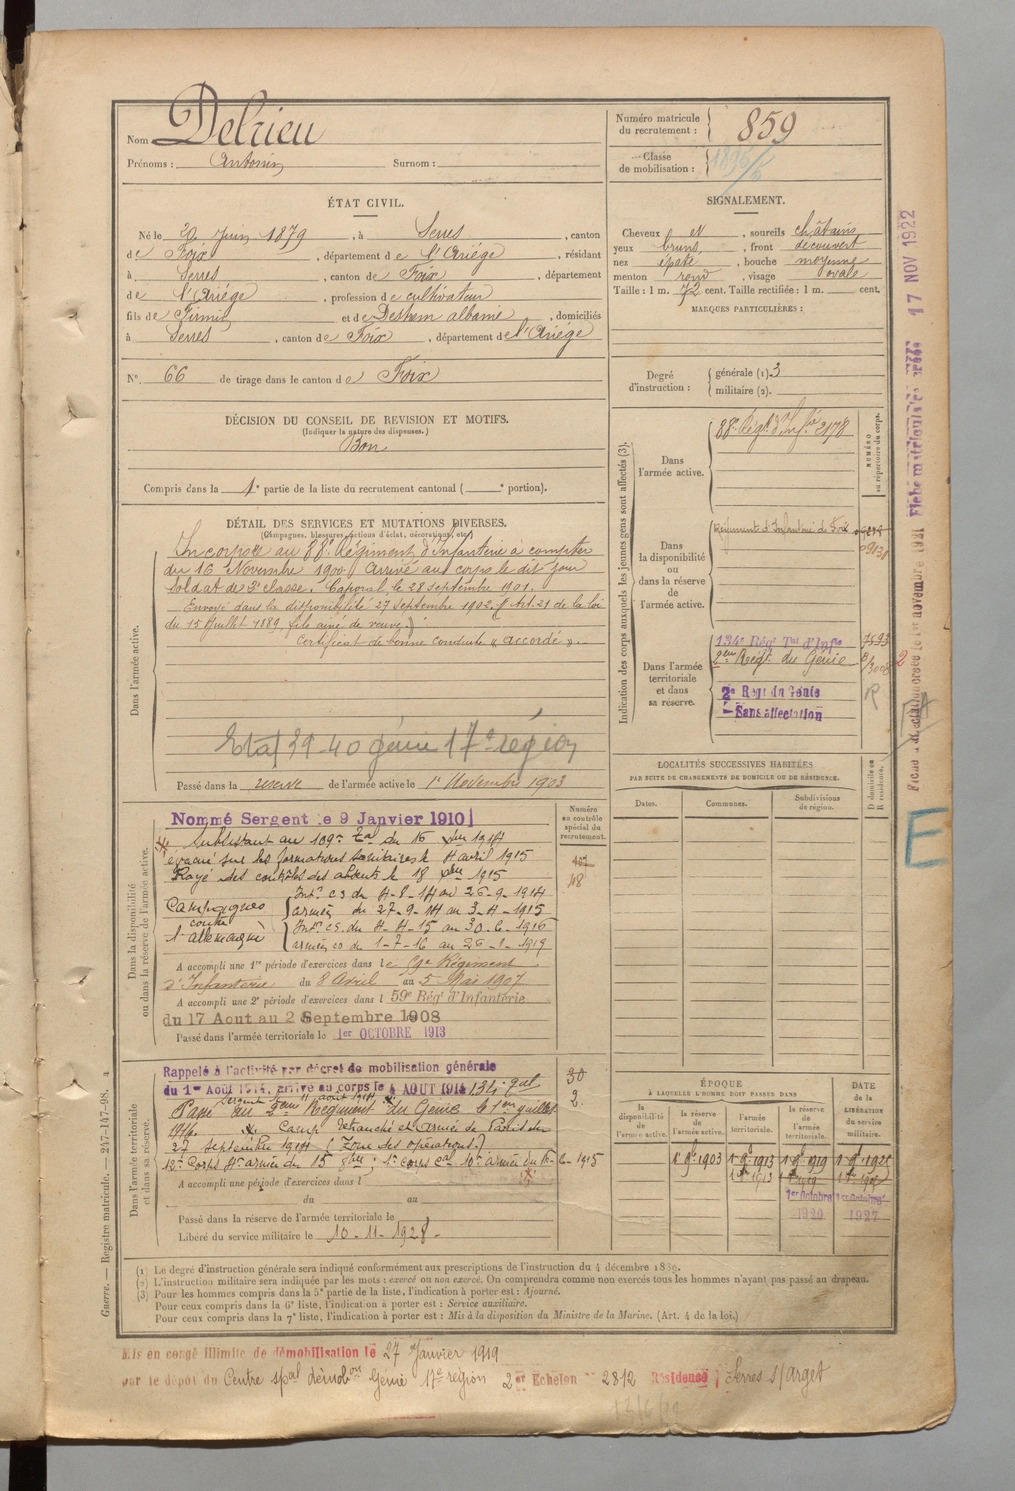 Nom Delrieu
Prénoms : Antonin Surnom :
Numéro matricule
du recrutement : 859
Classe
de mobilisation : 1896/6
ÉTAT CIVIL.
Né le 20 Juin 1879, à Serres, canton
de Foix, département de l'Ariége, résidant
à Serres, canton de Foix, département
de l'Ariége, profession de cultivateur
fils de Firmin et de albanie, domiciliés
à Serres, canton de Foix, département de l'Ariége
N°. 66 de tirage dans le canton de Foix
SIGNALEMENT.
Cheveux et, sourcils châtains
yeux bruns, front découvert
nez épaté, bouche moyenne
menton rond, visage ovale
Taille : 1 m. 72 cent. Taille rectifiée : 1 m. cent.
MARQUES PARTICULIÈRES :
Degré
d'instruction :
générale (1). 3
militaire (2).
DÉCISION DU CONSEIL DE REVISION ET MOTIFS.
(Indiquer la nature des dispenses.)
Bon
Compris dans la 1e partie de la liste du recrutement cantonal ( e portion).
DÉTAIL DES SERVICES ET MUTATIONS DIVERSES.
(Campagnes, blessures, actions d'éclat, décorations, etc.)
Dans l'armée active.
Incorporé au 88e Régiment d'Infanterie à compter
du 16 Novembre 1900. Arrivé au corps le dit jour
soldat de 2e classe. Caporal le 28 septembre 1901.
Envoyé dans la disponibilité 27 Septembre 1902. (Art. 21 de la loi
du 15 Juillet 1889, fils ainé de veuve).
Certificat de bonne conduite « accordé ».
Etat 39-40 génie 17e région
Passé dans la réserve de l'armée active le 1er Novembre 1903
Indication des corps auxquels les jeunes gens sont affectés (3).
NUMÉRO
au répertoire du corps.
Dans
l'armée active.
88e Régt d'Infie 2178
Dans
la disponibilité
ou
dans la réserve
de
l'armée active.
Régiment d'Infanterie de Foix
Dans l'armée
territoriale
et dans
sa réserve.
134e Régt Tal d'Infie 7493
2eme Régt du Génie
2e Régt du Génie
Sans affectation
R
LOCALITÉS SUCCESSIVES HABITÉES
PAR SUITE DE CHANGEMENTS DE DOMICILE OU DE RÉSIDENCE.
Dates. Communes. Subdivisions
de région.
D domicile ou
R résidence.
Dans la disponibilité
ou dans la réserve de l'armée active.
Numéro
au contrôle
spécial du
recrutement.
Nommé Sergent le 9 Janvier 1910
Subsistant au 109e Tal du 16 Xbre 1914
évacué sur les formations sanitaires le 4 avril 1915
Rayé des contrôles des absents le 18 Xbre 1915
Campagnes
contre
l'allemagne
Intr cs du 4-8-14 au 26-9-1914
armées du 27-9-14 au 3-4-1915
Intr cs. du 4-4-15 au 30-6-1916
armées cs du 1-7-16 au 26-1-1919
A accompli une 1re période d'exercices dans le 59e Régiment
d'Infanterie du 8 Avril au 5 Mai 1907
A accompli une 2e période d'exercices dans l 59e Régt d'Infanterie
du 17 Aout au 2 Septembre 1908
Passé dans l'armée territoriale le 1er OCTOBRE 1913
Dans l'armée territoriale
et dans sa réserve.
Rappelé à l'activité par décret de mobilisation générale
du 1er Août 1914, arrivé au corps le 4 AOUT 1914
30
2.
Passé au 2eme Régiment du Génie le 1er Juillet
1916. Camp retranché et armée de Paris du
27 septembre 1914 (Zone des opérations.)
A accompli une période d'exercices dans l
du au
Passé dans la réserve de l'armée territoriale le
Libéré du service militaire le 10-11-1928-
ÉPOQUE
À LAQUELLE L'HOMME DOIT PASSER DANS
la
disponibilité
de
l'armée active.
la réserve
de
l'armée active.
l'armée
territoriale.
la réserve
de
l'armée
territoriale.
DATE
de la
LIBÉRATION
du service
militaire.
1er 9bre 1903 1er 9bre 1913 1er 9bre 1919 1er 9bre 1925
1er Octobre 1er Octobre
1920 1927
(1) Le degré d'instruction générale sera indiqué conformément aux prescriptions de l'instruction du 4 décembre 1889.
(2) L'instruction militaire sera indiquée par les mots : exercé ou non exercé. On comprendra comme non exercés tous les hommes n'ayant pas passé au drapeau.
(3) Pour les hommes compris dans la 5e partie de la liste, l'indication à porter est : Ajourné.
Pour ceux compris dans la 6e liste, l'indication à porter est : Service auxiliaire.
Pour ceux compris dans la 7e liste, l'indication à porter est : Mis à la disposition du Ministre de la Marine. (Art. 4 de la loi.)
Mis en congé illimité de démobilisation le 27 Janvier 1919
par le dépôt du Centre spal démobon Génie 17e région 2er Echelon 2812 Résidence Serres s/Arget
Guerre. — Registre matricule. — 247-147-98.
17 NOV 1922
E